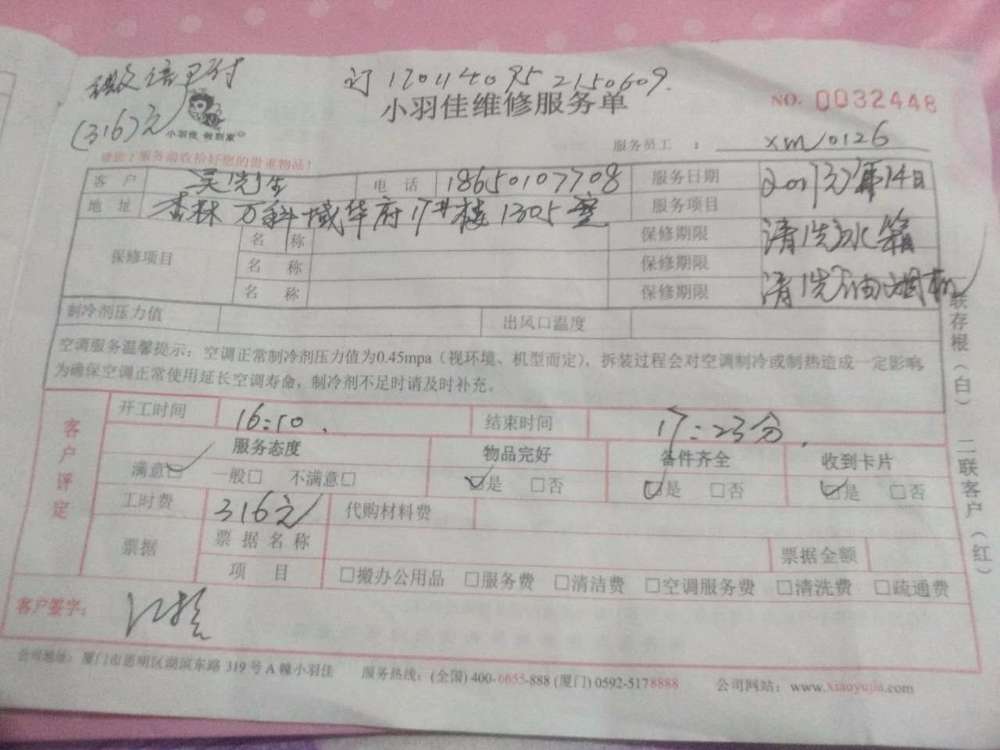 微信已付
(316)元
小羽佳 帮到家
订
小羽佳维修服务单
NO. 0032448
服务员工 : xm10126
请您!服务前收拾好您的贵重物品!
客 户 吴先生 电 话 18650107708 服务日期
地 址 杏林万科城华府17#楼1305室 服务项目
保修项目 名 称 保修期限 清洗水箱
名 称 保修期限
名 称 保修期限 清洗油烟机
制冷剂压力值 出风口温度
空调服务温馨提示:空调正常制冷剂压力值为0.45mpa(视环境、机型而定),拆装过程会对空调制冷或制热造成一定影响,
为确保空调正常使用延长空调寿命,制冷剂不足时请及时补充。
客户评定
开工时间 16:10. 结束时间 17:23分.
服务态度 物品完好 备件齐全 收到卡片
满意□ 一般□ 不满意□ □是 □否 □是 □否 □是 □否
工时费 316元 代购材料费
票据 票据名称 票据金额
项 目 □搬办公用品 □服务费 □清洁费 □空调服务费 □清洗费 □疏通费
客户签字:
公司地址:厦门市思明区湖滨东路 319 号 A 幢小羽佳 服务热线:(全国) 400-6655-888 (厦门) 0592-5178888 公司网站:www.xiaoyujia.com
联存根(白) 二联客户(红)